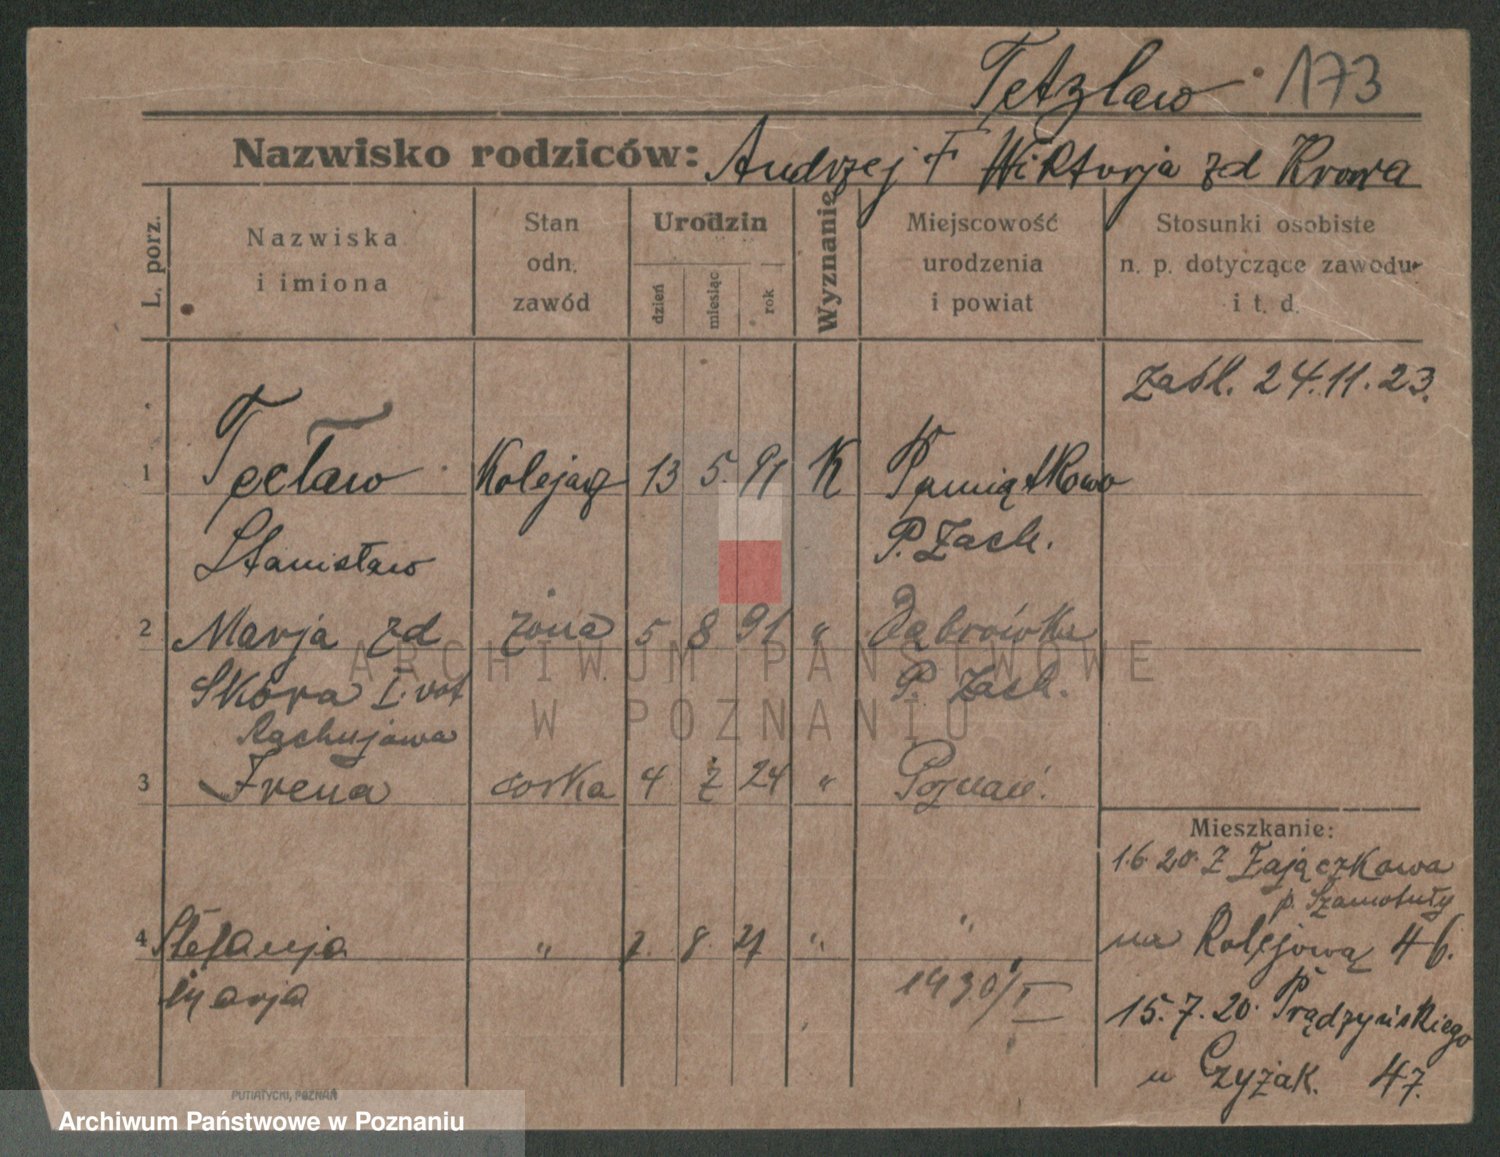 Tetzlaw 173
Nazwisko rodziców: Andrzej + Wiktorja zd Krowa
L. porz. Nazwiska i imiona Stan odn. zawód Urodzin dzień miesiąc rok Wyznanie Miejscowość urodzenia i powiat Stosunki osobiste n. p. dotyczące zawodu i t. d.
zaśl. 24.11.23.
1 Tecław Kolejarz 13 5. 91 K Pamiątkowo
Stanisław P. Zach.
2 Marja zd żona 5 8 91 " Dąbrówka
Skóra I. vot P. Zach.
3 Irena corka 4 2 24 " Poznań.
Mieszkanie:
1.6.20. Z Zajączkowa
p. Szamotuły
4 Stefanja " 7. 8. 27 " "
na Kolejową 46.
Marja 1930/I
15.7.20. Prądzyńskiego
u Czyżak. 47.
PUTIATYCKI, POZNAŃ
ARCHIWUM PAŃSTWOWE
W POZNANIU
Archiwum Państwowe w Poznaniu